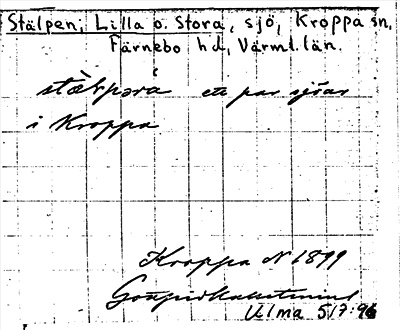 Stälpen, Lilla o. Stora, sjö, Kroppa sn,
Färnebo hd, Värml. län.
ett par sjöar
i Kroppa
Kroppa N 1899
Ulma 517:96